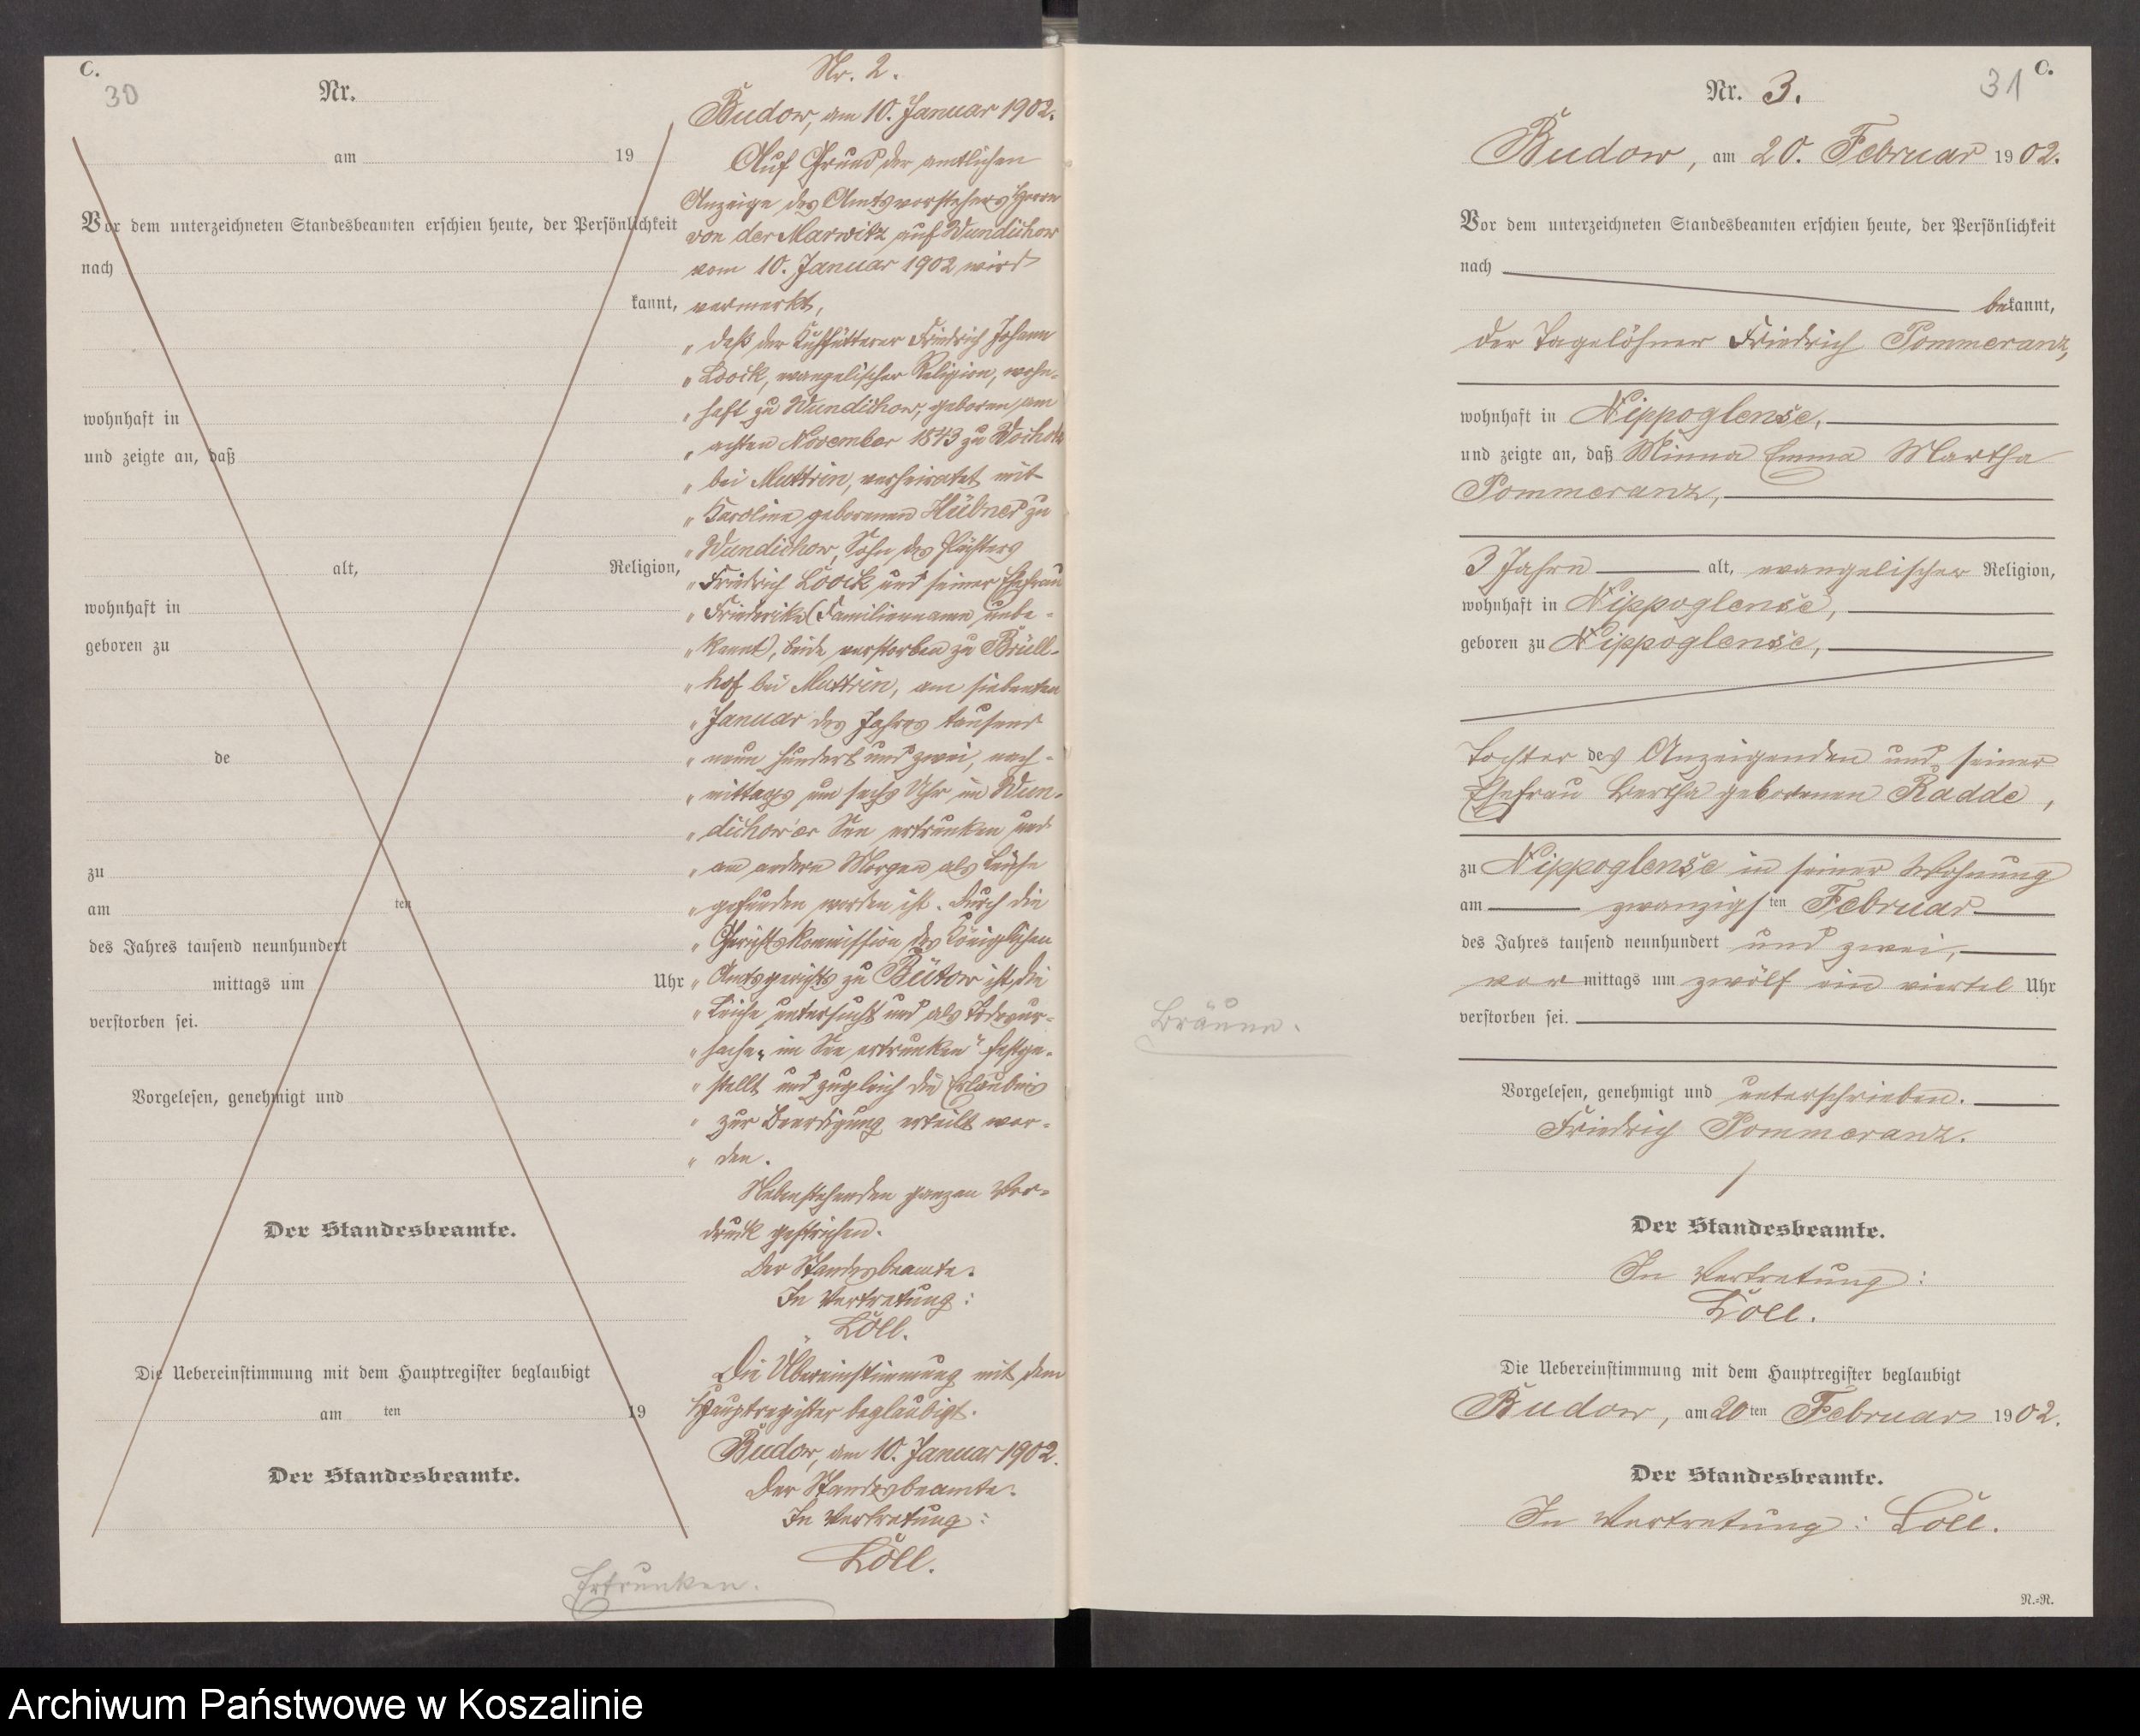 C.
30
Nr.
am 19
Vor dem unterzeichneten Standesbeamten erschien heute, der Persönlichkeit
nach
kannt,
wohnhaft in
und zeigte an, daß
alt, Religion,
wohnhaft in
geboren zu
de
zu
am ten
des Jahres tausend neunhundert
mittags um Uhr
verstorben sei.
Vorgelesen, genehmigt und
Der Standesbeamte.
Die Uebereinstimmung mit dem Hauptregister beglaubigt
am ten 19
Der Standesbeamte.
Ertrunken.
Nr. 2.
Budow, am 10. Januar 1902.
Auf Grund der amtlichen
Anzeige des Amtsvorstehers Herrn
von der Marwitz auf Wundichow
vom 10. Januar 1902 wird
vermerkt,
„ daß der Kuhfütterer Friedrich Johann
„ Loock, evangelischer Religion, wohn-
„ haft zu Wundichow, geboren am
„ achten November 1843 zu
„ bei Muttrin, verheiratet mit
„ Karoline geborenen Hübner zu
„ Wundichow, Sohn des Pächters
„ Friedrich Loock und seiner Ehefrau
„ Friederike (Familienname unbe-
„ kannt), beide verstorben zu Brüll-
„ hof bei Muttrin, am siebenten
„ Januar des Jahres tausend
„ neun hundert und zwei, nach-
„ mittags um sechs Uhr im Wun-
„ dichow'er See ertrunken und
„ am andern Morgen als Leiche
„ gefunden worden ist. Durch die
„ Gerichtskommission des Königlichen
„ Amtsgerichts zu Bütow ist die
„ Leiche untersucht und als Todesur-
„ sache „im See ertrunken" festge-
„ stellt und zugleich die Erlaubnis
„ zur Beerdigung erteilt wor-
„ den.
Nebenstehenden ganzen Vor-
druck gestrichen.
Der Standesbeamte.
In Vertretung:
Löll.
Die Übereinstimmung mit dem
Hauptregister beglaubigt.
Budow, am 10. Januar 1902.
Der Standesbeamte.
In Vertretung:
Löll.
Bräune.
C.
31
Nr. 3.
Budow, am 20. Februar 1902.
Vor dem unterzeichneten Standesbeamten erschien heute, der Persönlichkeit
nach
bekannt,
der Tagelöhner Friedrich Pommeranz,
wohnhaft in Nippoglense,
und zeigte an, daß Minna Emma Martha
Pommeranz,
3 Jahre alt, evangelischer Religion,
wohnhaft in Nippoglense,
geboren zu Nippoglense,
Tochter des Anzeigenden und seiner
Ehefrau Bertha geborenen Radde,
zu Nippoglense in seiner Wohnung
am zwanzigsten Februar
des Jahres tausend neunhundert und zwei,
vor mittags um zwölf ein viertel Uhr
verstorben sei.
Vorgelesen, genehmigt und unterschrieben.
Friedrich Pommeranz.
Der Standesbeamte.
In Vertretung:
Löll.
Die Uebereinstimmung mit dem Hauptregister beglaubigt
Budow, am 20ten Februar 1902.
Der Standesbeamte.
In Vertretung: Löll.
N.=R.
Archiwum Państwowe w Koszalinie